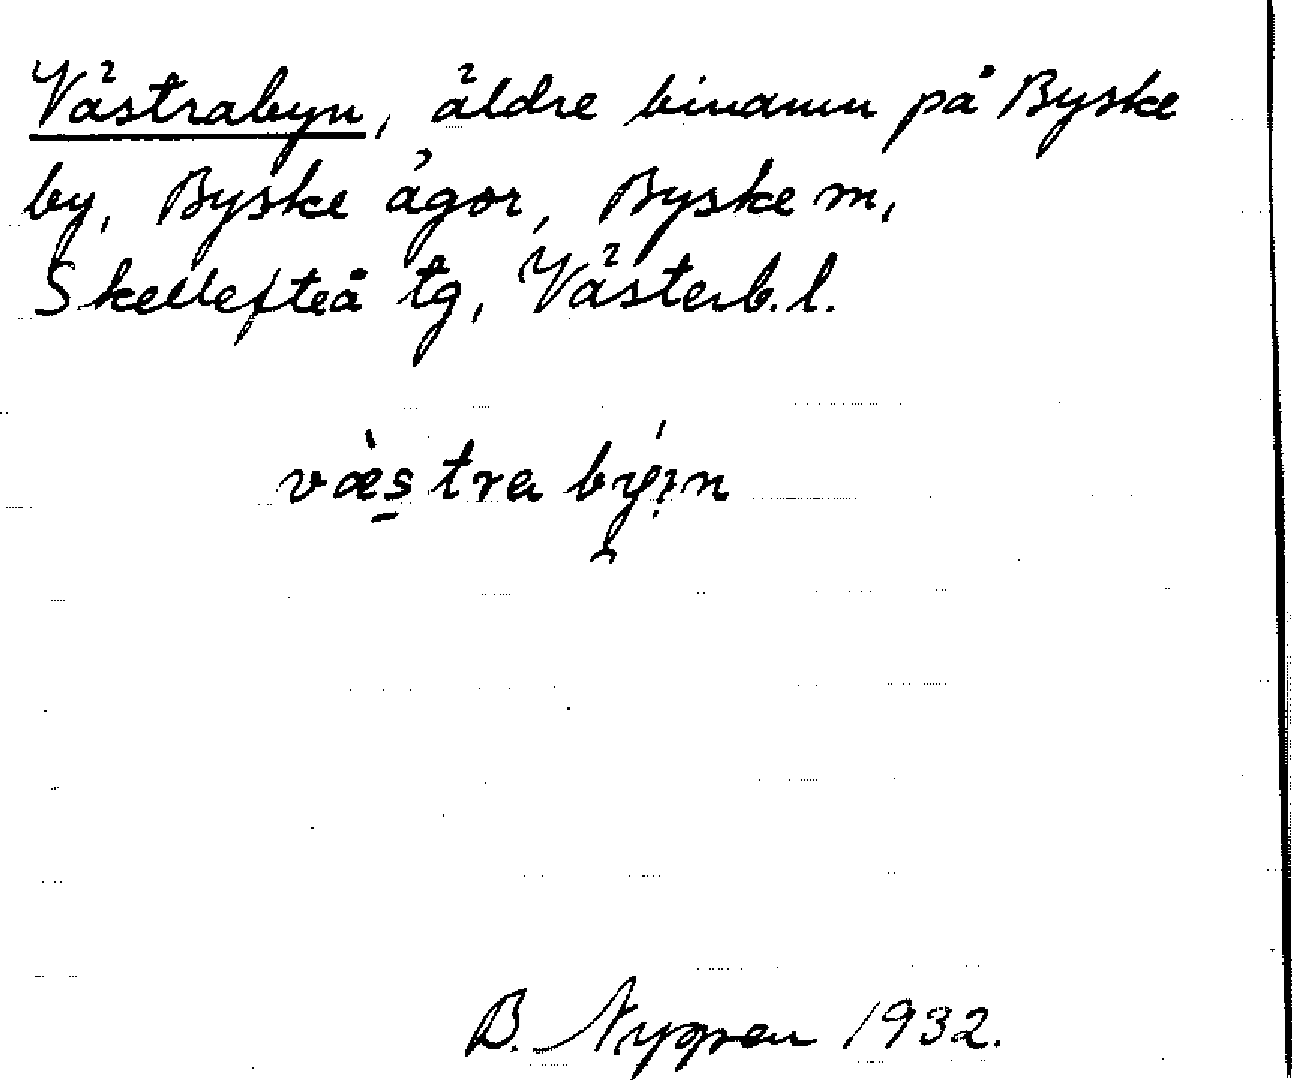 Västrabyn, äldre binamn på Byske
by, Byske ägor, Byske m,
Skellefteå tg, Västerb. l.
væ̀stra bý:n
B. Nygren 1932.